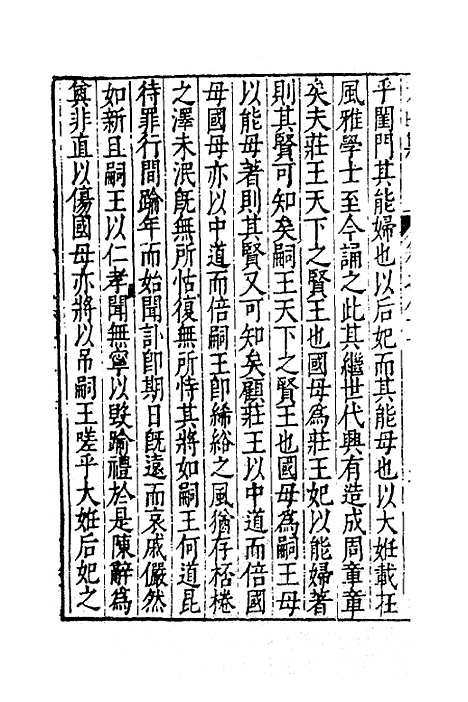 乎閨門其能婦也以后妃而其能母也以大姙載在
風雅學士至今誦之此其繼世代興有造成周章章
矣夫莊王天下之賢王也國母為莊王妃以能婦著
則其賢可知矣嗣王天下之賢王也國母為嗣王母
以能母著則其賢又可知矣顧莊王以中道而倍國
母國母亦以中道而倍嗣王即絺綌之風猶存桮棬
之澤未泯既無所怙復無所恃其將如嗣王何道昆
待罪行間踰年而始聞訃即期日既遠而哀戚儼然
如新且嗣王以仁孝聞無寧以毀踰禮於是陳辭為
奠非直以傷國母亦將以吊嗣王嗟乎大姙后妃之